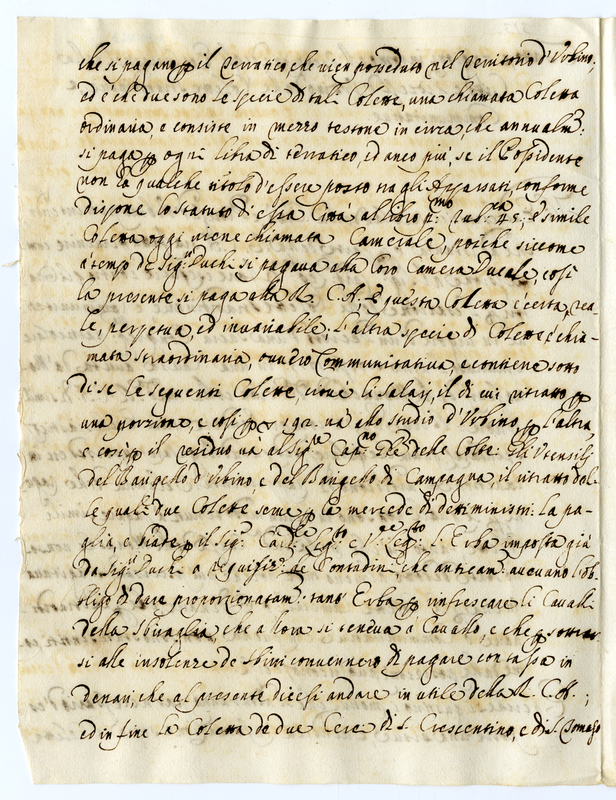 che si pagano p il Terratico, che vien posseduto nel Territorio d'Urbino;
ed è che due sono le specie di tali Colette, una chiamata Coletta
ordinaria, e consiste in mezzo testone in circa, che annualm:
si paga p ogni libra di terratico, ed anco più se il Possidente
non ha qualche titolo d'essere posto tra gli Appassati, conforme
dispone lo statuto di essa Città al libro p:mo rub:ca 45; e simile
Coletta oggi viene chiamata Camerale, poiche siccome
à tempo de Sig:ri Duchi si pagava alla loro Camera Ducale, così
la presente si paga alla R. C. A. E questa Coletta è certa, rea-
le, perpetua, ed invariabile; l'altra specie di Colette è chia-
mata straordinaria, ovvero Communitativa, e contiene sotto
di se le seguenti Colette, cioè li Salarj, il di cui ritratto p
una porzione, e cosi p 192. và allo studio d'Urbino, p l'altra
e cosi p il residuo và al Sig:re Cap:no delle Colte: Gli Utensilj
del Bargello d'Urbino, e del Bargello di Campagna, il ritratto del-
le quali due Colette serve p la mercede di detti ministri: la pa-
glia, e p il Sig: Card:le Leg:to e V:ce Leg:to: L'Erba imposta già
da Sig:ri Duchi a de Contadini, che anticam: avevano l'ob-
bligo di dare proporzionatam: tant'Erba p rinfrescare li Cavalli
della Sbirraglia, che allora si teneva à Cavallo, e che p sottrar-
si alle insolenze de sbirri convennero di pagare con tassa in
denari, che al presente dicesi andare in utile della R. C. A.;
ed in fine la Coletta de due Cere di S. Crescentino, e di S. Tomaso